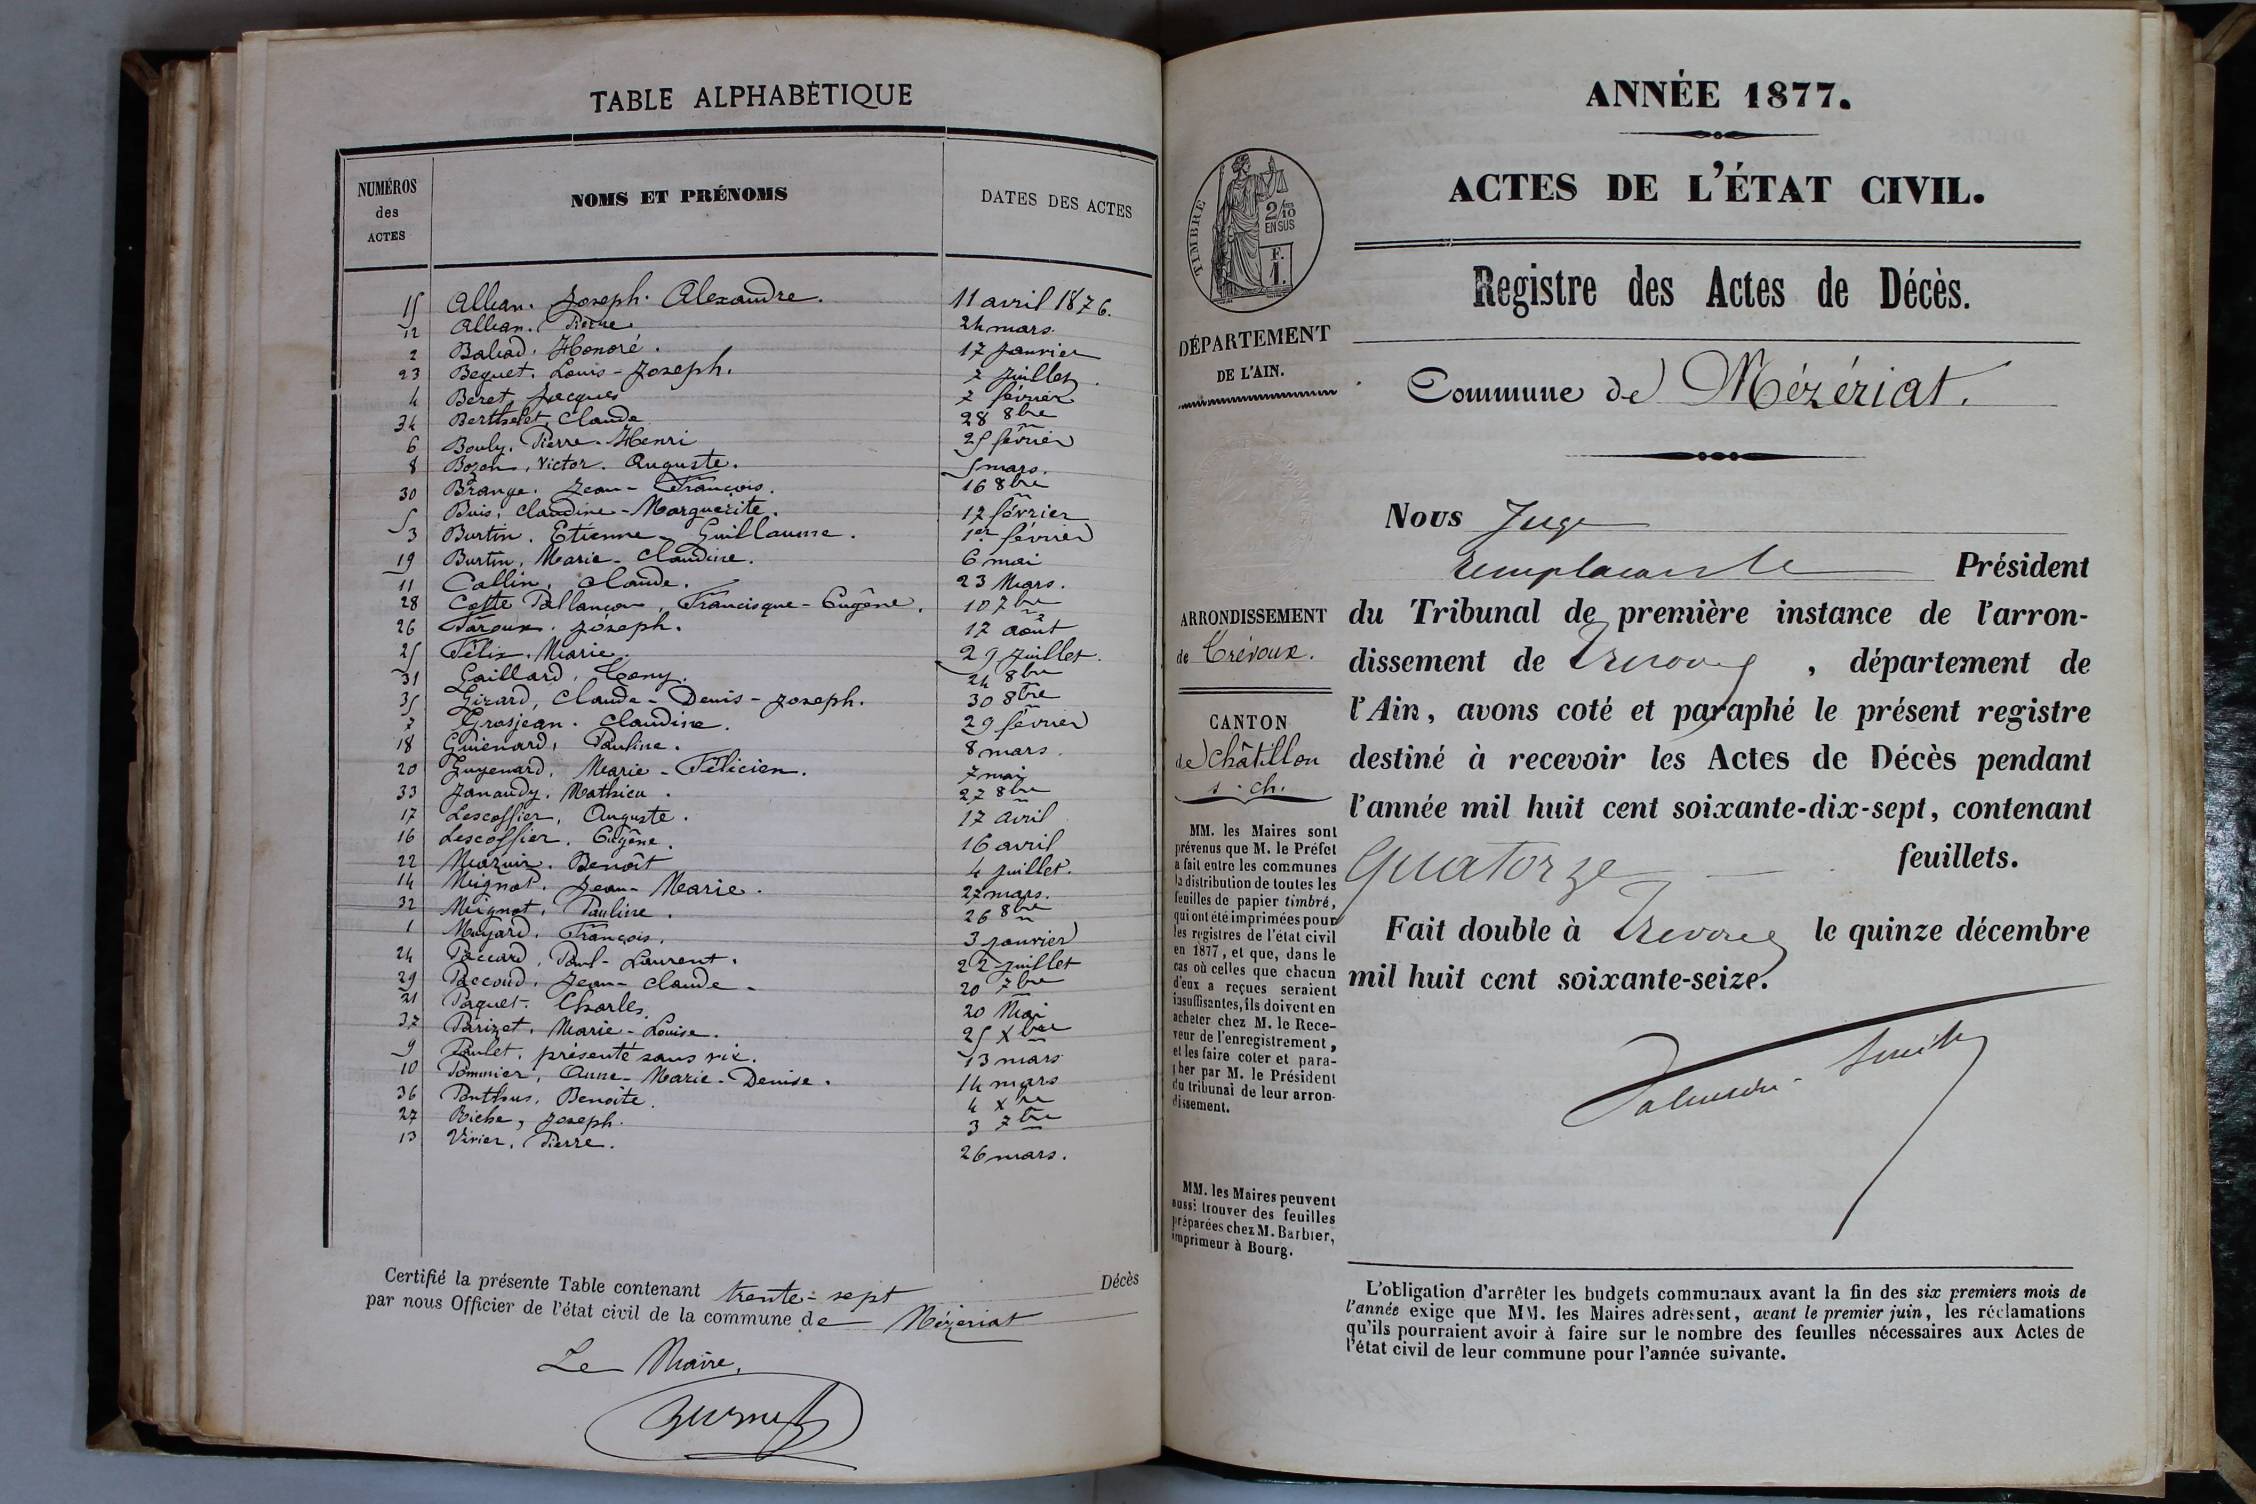 TABLE ALPHABÉTIQUE
NUMÉROS des ACTES
NOMS ET PRÉNOMS
DATES DES ACTES
15 Alban. Joseph. Alexandre. 11 avril 1876.
12 Alban. Pierre. 24 mars.
2 Balad. Honoré. 17 janvier
23 Bequet. Louis-Joseph. 7 juillet.
4 Beret Jacques 7 février
34 Berthelet, Claude 28 8bre
6 Bouly, Pierre-Henri 25 février
8 Bozon, Victor. Auguste. 5 mars.
30 Brange. Jean-François. 16 8bre
5 Buis, Claudine-Marguerite. 17 février
3 Burtin. Etienne-Guillaume. 1er février
19 Burtin, Marie-Claudine. 6 mai
11 Collin, Claude. 23 Mars.
28 Cotte Pallançon, Francisque-Eugêne. 10 7bre
26 Faroux. Joseph. 17 août
25 Félix. Marie. 29 juillet.
31 Gaillard, Tony. 24 8bre
35 Girard, Claude-Denis-Joseph. 30 8bre
7 Grosjean. Claudine. 29 février
18 Guienard, Pauline. 8 mars.
20 Guyenard, Marie-Félicien. 7 mai
33 Janaudy. Mathieu. 27 8bre
17 Lescoffier, Auguste. 17 avril
16 Lescoffier. Eugêne. 16 avril
22 Mazuir. Benoît 4 juillet.
14 Mignot. Jean-Marie. 27 mars.
32 Mignot, Pauline. 26 8bre
1 Moyard. François. 3 janvier
24 Paccard, Paul-Laurent. 22 juillet
29 Paccoud, Jean-Claude. 20 7bre
21 Paquet. Charles. 20 Mai
37 Parizet, Marie-Louise. 25 Xbre
9 Paulet, présenté sans vie. 13 mars
10 Pommier, Anne-Marie-Denise. 14 mars
36 Ponthus, Benoite. 4 Xbre
27 Riche, Joseph. 3 7bre
13 Vivier, Pierre. 26 mars.
Certifié la présente Table contenant trente-sept Décès
par nous Officier de l'état civil de la commune de Mézériat
Le Maire,
ANNÉE 1877.
ACTES DE L'ÉTAT CIVIL.
Registre des Actes de Décès.
Commune de Mézériat.
TIMBRE
2/10
EN SUS
F.
1.
DÉPARTEMENT
DE L'AIN.
ARRONDISSEMENT
de Trévoux.
CANTON
de Châtillon
s. Ch.
MM. les Maires sont
prévenus que M. le Préfet
a fait entre les communes
la distribution de toutes les
feuilles de papier timbré,
qui ont été imprimées pour
les registres de l'état civil
en 1877, et que, dans le
cas où celles que chacun
d'eux a reçues seraient
insuffisantes, ils doivent en
acheter chez M. le Rece-
veur de l'enregistrement,
et les faire coter et para-
pher par M. le Président
du tribunal de leur arron-
dissement.
MM. les Maires peuvent
aussi trouver des feuilles
préparées chez M. Barbier,
imprimeur à Bourg.
Nous Juge
remplacant le Président
du Tribunal de première instance de l'arron-
dissement de Trevoux, département de
l'Ain, avons coté et paraphé le présent registre
destiné à recevoir les Actes de Décès pendant
l'année mil huit cent soixante-dix-sept, contenant
quatorze feuillets.
Fait double à Trevoux le quinze décembre
mil huit cent soixante-seize.
L'obligation d'arrêter les budgets communaux avant la fin des six premiers mois de
l'année exige que MM. les Maires adressent, avant le premier juin, les réclamations
qu'ils pourraient avoir à faire sur le nombre des feuilles nécessaires aux Actes de
l'état civil de leur commune pour l'année suivante.